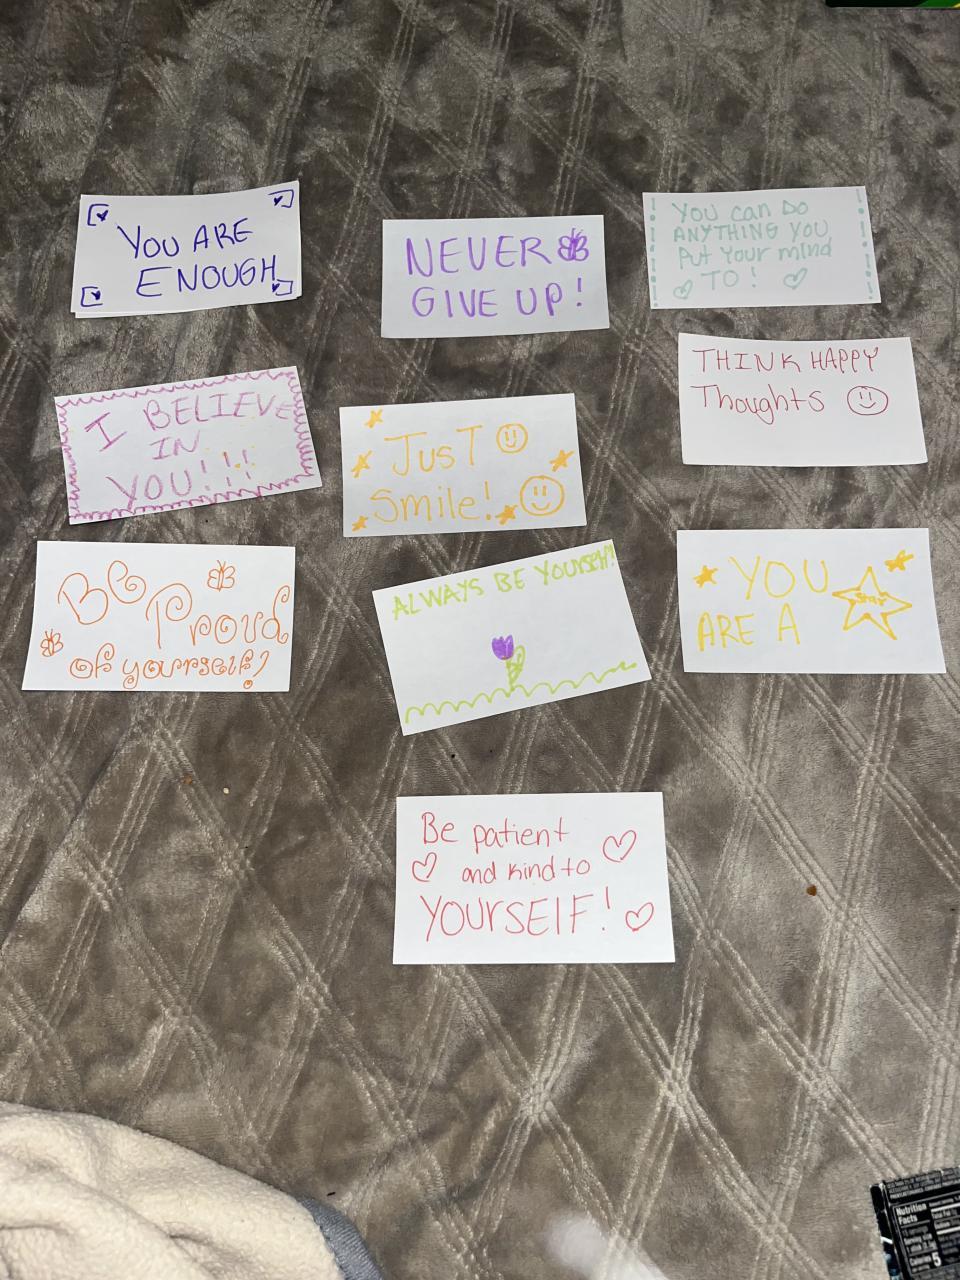 YOU ARE
ENOUGH
NEVER
GIVE UP!
You can Do
ANYTHING YOU
Put Your mind
TO!
I BELIEVE
IN
YOU!!!
JusT
Smile!
THINK HAPPY
Thoughts
Be
Proud
of yourself!
ALWAYS BE YOURSELF!
YOU
ARE A
STAR
Be patient
and kind to
YOURSELF!
Nutrition
Facts
Serving size
Calories 5